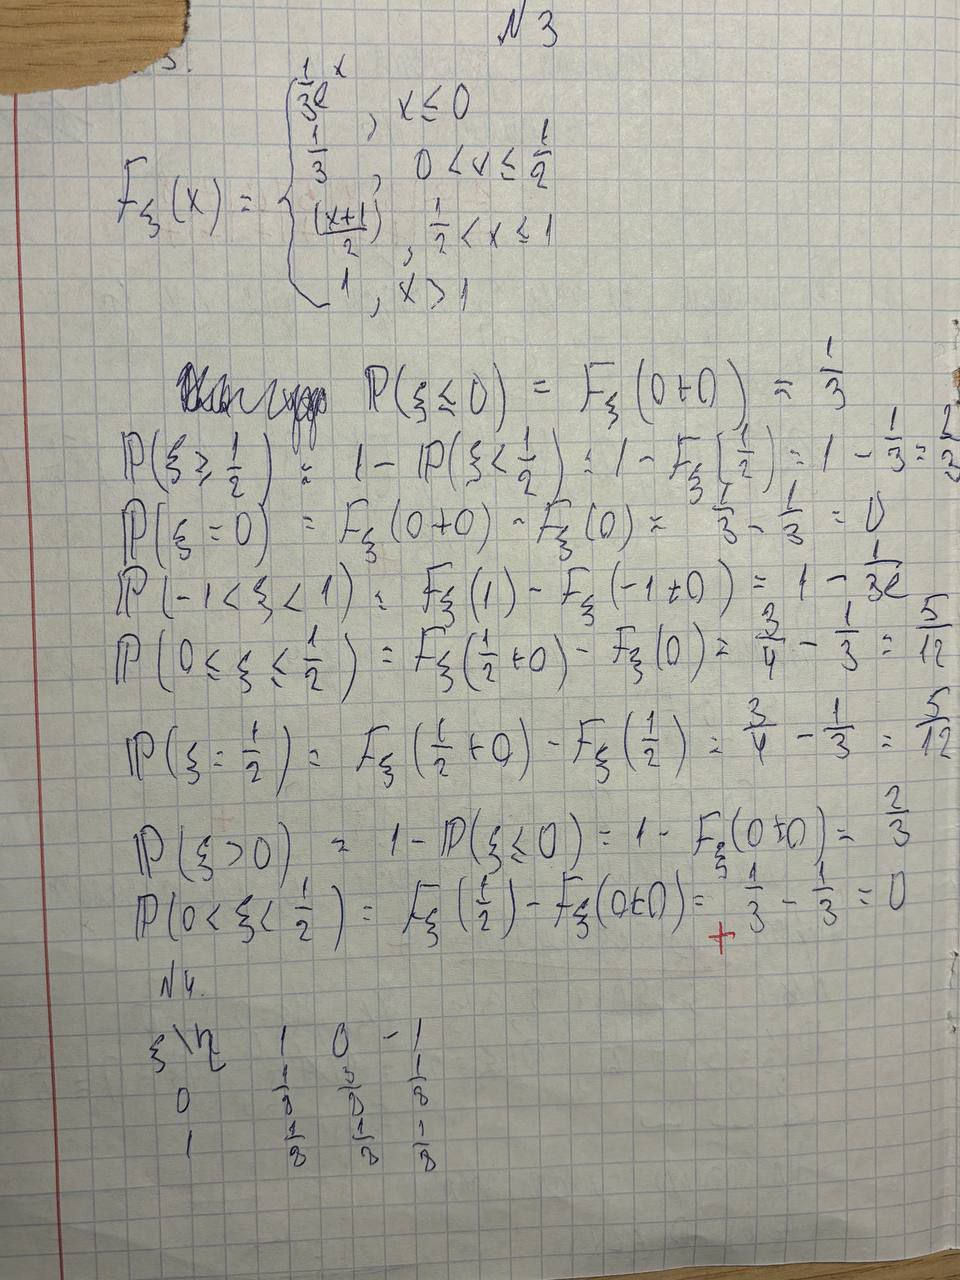 N 3
F_ξ(x) = { 1/3 e^x , x ≤ 0
1/3 , 0 < x ≤ 1/2
(x+1)/2 , 1/2 < x ≤ 1
1 , x > 1
P(ξ ≤ 0) = F_ξ(0+0) = 1/3
P(ξ ≥ 1/2) = 1 - P(ξ < 1/2) = 1 - F_ξ(1/2) = 1 - 1/3 = 2/3
P(ξ = 0) = F_ξ(0+0) - F_ξ(0) = 1/3 - 1/3 = 0
P(-1 < ξ < 1) = F_ξ(1) - F_ξ(-1+0) = 1 - 1/3e
P(0 ≤ ξ ≤ 1/2) = F_ξ(1/2+0) - F_ξ(0) = 3/4 - 1/3 = 5/12
P(ξ = 1/2) = F_ξ(1/2+0) - F_ξ(1/2) = 3/4 - 1/3 = 5/12
P(ξ > 0) = 1 - P(ξ ≤ 0) = 1 - F_ξ(0+0) = 2/3
P(0 < ξ < 1/2) = F_ξ(1/2) - F_ξ(0+0) = 1/3 - 1/3 = 0
+
N 4.
ξ \ η 1 0 -1
0 1/8 3/8 1/8
1 1/8 1/8 1/8